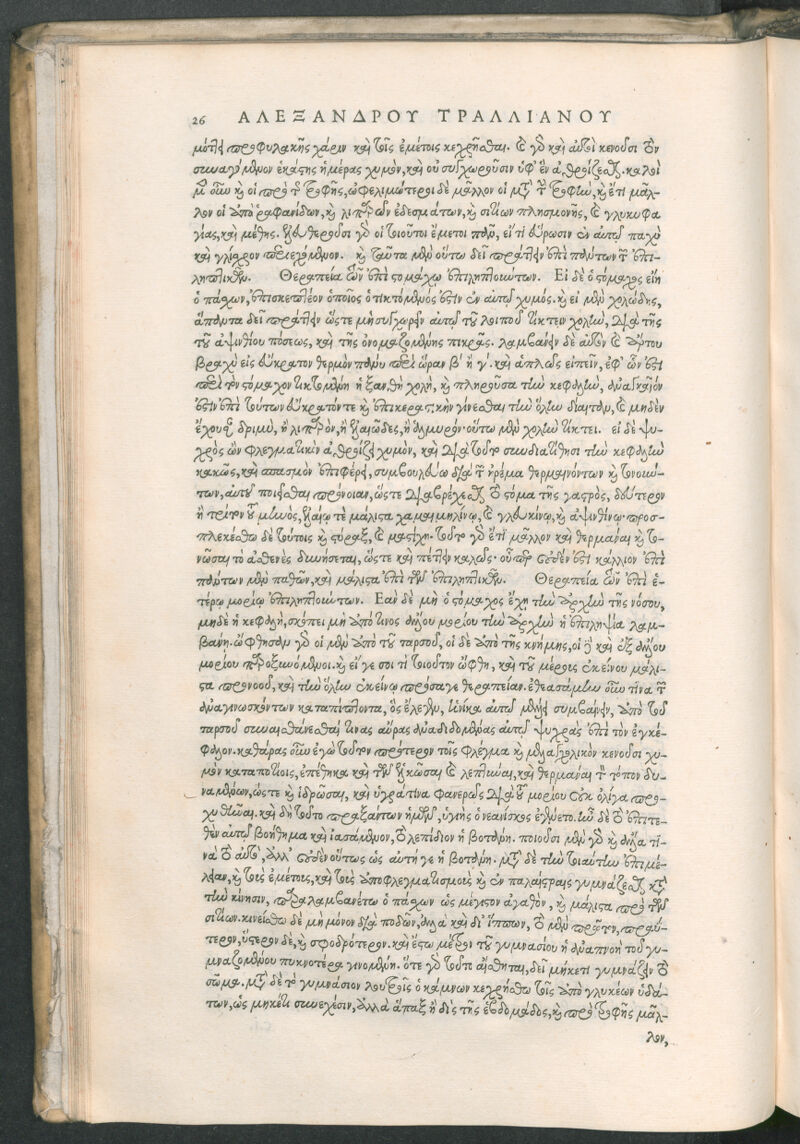 26 ΑΛΕΞΑΝΔΡΟΥ ΤΡΑΛΛΙΑΝΟΥ
προφυλακῆς χάριν καὶ τοῖς ἐμέτοις κεχρῆσθαι. καὶ γὰρ καὶ αὐτοὶ κενοῦσι τὸν
συναγόμενον ἑκάστης ἡμέρας χυμὸν, καὶ οὐ συγχωροῦσιν ὑφ' ἓν ἀθροίζεσθαι. καλοὶ
μὲν οὖν καὶ οἱ πρὸ τῆς τροφῆς, ὠφελιμώτεροι δὲ μᾶλλον οἱ μετὰ τὴν τροφὴν, καὶ ἔτι μᾶλ-
λον οἱ ἀπὸ ῥαφανίδων, καὶ λιπαρῶν ἐδεσμάτων, καὶ σιτίων πλησμονῆς, καὶ γλυκυφα
γίας, καὶ μέθης. γὰρ οἱ τοιοῦτοι ἔμετοι πᾶν, εἴ τι εὕρωσιν ἐν αὐτῷ παχὺ
καὶ γλίσχρον περιεχόμενον. καὶ ταῦτα μὲν οὕτω δεῖ πράττειν ἐπὶ πάντων τῶν ἐπι-
ληπτικῶν. Θεραπεία τῶν ἐπὶ στομάχῳ ἐπιληπτιώντων. Εἰ δὲ ὁ στόμαχος εἴη
ὁ πάσχων, ἐπισκεπτέον ὁποῖος ὁ τικτόμενός ἐστιν ἐν αὐτῷ χυμός. καὶ εἰ μὲν χολώδης,
ἅπαντα δεῖ πράττειν ὥστε μὴ συγχωρεῖν αὐτῷ τοῦ λοιποῦ τίκτειν χολὴν, διὰ τῆς
τοῦ ἀψινθίου πόσεως, καὶ τῆς ὀνομαζομένης πικρᾶς. λαμβάνειν δὲ αὐτὸν καὶ ἄρτου
βραχὺ εἰς εὔκρατον θερμὸν πάνυ περὶ ὥραν β′ ἢ γ′. καὶ ἁπλῶς εἰπεῖν, ἐφ' ὧν ἐστι
περὶ τὸν στόμαχον τικτομένη ἡ ξανθὴ χολὴ, καὶ πληροῦσα τὴν κεφαλὴν, ἀναγκαῖον
ἐστὶν ἐπὶ τούτων εὔκρατόν τε καὶ ἐπικεραστικὴν γίνεσθαι τὴν ὅλην δίαιταν, καὶ μηδὲν
ἔχουσαν δριμὺ, ἢ λιπαρὸν, ἢ ἐλαιῶδες, ἢ ἁλμυρόν· οὕτω μὲν χολὴν τίκτει. εἰ δὲ ψυ-
χρὸς ὢν φλεγματικὸν ἀθροίζει χυμὸν, καὶ διὰ τοῦτο συνδιατίθησι τὴν κεφαλὴν
κακῶς, καὶ σπασμὸν ἐπιφέρει, συμβουλεύω διὰ τῶν ἠρέμα θερμαινόντων καὶ τονούν-
των, αὐτοῦ ποιεῖσθαι πρόνοιαν, ὥστε διαβρέχεσθαι τὸ στόμα τῆς γαστρὸς, δεύτερον
ἢ τρίτον τοῦ μηνὸς, ἐλαίῳ τε μάλιστα χαμαιμηλίνῳ, καὶ γλευκίνῳ, καὶ ἀψινθίνῳ· προσ-
πλεκέσθω δὲ τούτοις καὶ στύραξ, καὶ μαστίχη. τοῦτο γὰρ ἔτι μᾶλλον καὶ θερμᾶναι καὶ το-
νῶσαι τὸ ἀσθενὲς δυνήσεται, ὥστε καὶ πέττειν καλῶς· οὗπερ οὐδέν ἐστι κάλλιον ἐπὶ
πάντων μὲν παθῶν, καὶ μάλιστα ἐπὶ τῶν ἐπιληπτικῶν. Θεραπεία τῶν ἐπὶ ἑ-
τέρῳ μορίῳ ἐπιληπτιώντων. Ἐὰν δὲ μὴ ὁ στόμαχος ἔχῃ τὴν ἀρχὴν τῆς νόσου,
μηδὲ ἡ κεφαλὴ, σκόπει μὴ ἀπό τινος ἄλλου μορίου τὴν ἀρχὴν ἡ ἐπιληψία λαμ-
βάνῃ. ὤφθησαν γὰρ οἱ μὲν ἀπὸ τοῦ ταρσοῦ, οἱ δὲ ἀπὸ τῆς κνήμης, οἱ δὲ καὶ ἐξ ἄλλου
μορίου παροξυνόμενοι. καὶ εἴ γέ σοι τι τοιοῦτον ὤφθη, καὶ τοῦ μέρους ἐκείνου μάλι-
στα προνοοῦ, καὶ τὴν ὅλην ἐκείνῳ πρόσαγε θεραπείαν. ἐθεασάμην οὖν τινα τῶν
ἀναγινωσκόντων καταπίπτοντα, ὃς ἔλεγεν, ἡνίκα αὐτῷ μέλλει συμβαίνειν, ἀπὸ τοῦ
ταρσοῦ συναισθάνεσθαί τινας αὔρας ἀναδιδομένας αὐτῷ ψυχρὰς ἐπὶ τὸν ἐγκέ-
φαλον. καθάρας οὖν ἐγὼ τοῦτον πρότερον τοῖς φλέγμα καὶ μελαγχολικὸν κενοῦσι χυ-
μὸν καταποτίοις, ἐπέθηκα καὶ τῶν ἑλκῶσαι καὶ λεπτῦναι, καὶ θερμᾶναι τὸν τόπον δυ-
ναμένων, ὥστε καὶ ἱδρῶσαι, καὶ ὑγρά τινα φανερῶς διὰ τοῦ μορίου οὐκ ὀλίγα προ-
χυθῆναι. καὶ δὴ τοῦτο πραξάντων ἡμῶν, ὑγιὴς ὁ νεανίσκος ἐγένετο. ἦν δὲ τὸ ἐπιτε-
θὲν αὐτῷ βοήθημα καὶ ἰασάμενον, τὸ λεπίδιον ἡ βοτάνη. ποιοῦσι μὲν γὰρ καὶ ἄλλα τι-
νὰ τὸ αὐτὸ, ἀλλ' οὐδὲν οὕτως ὡς αὐτή γε ἡ βοτάνη. μετὰ δὲ τὴν τοιαύτην ἐπιμέ-
λειαν, καὶ τοῖς ἐμέτοις, καὶ τοῖς ἀποφλεγματισμοῖς καὶ ἐν παλαίστραις γυμνάζεσθαι κατὰ
τὴν κίνησιν, παραλαμβανέτω ὁ πάσχων ὡς μέγιστον ἀγαθὸν, καὶ μάλιστα πρὸ τῶν
σιτίων. κινείσθω δὲ μὴ μόνον διὰ ποδῶν, ἀλλὰ καὶ δι' ἵππων, τὸ μὲν πρῶτον, πραΰ-
τερον, ὕστερον δὲ, καὶ σφοδρότερον. καὶ ἔστω μέτρον τοῦ γυμνασίου ἡ ἀναπνοὴ τοῦ γυ-
μναζομένου πυκνοτέρα γινομένη. ὅτε γὰρ τοῦτο αἴσθηται, δεῖ μηκέτι γυμνάζειν τὸ
σῶμα. μετὰ δὲ τὸ γυμνάσιον λουτροῖς ὁ κάμνων κεχρήσθω τοῖς ἀπὸ γλυκέων ὑδά-
των, ὡς μηκέτι συνεχέσιν, ἀλλὰ ἅπαξ ἢ δὶς τῆς ἑβδομάδος, καὶ πρὸ τροφῆς μᾶλ-
λον,